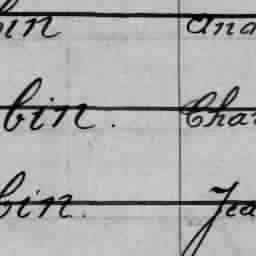 bin And
bin. Char
bin. Jea